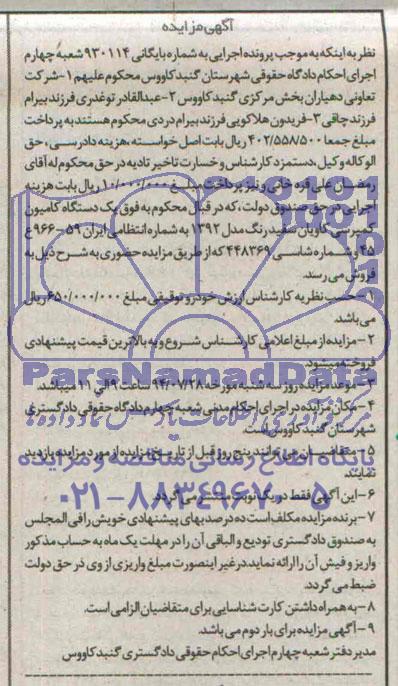 آگهی مزایده
نظر به اینکه به موجب پرونده اجرایی به شماره بایگانی ۹۳۰۱۱۴ شعبه چهارم
اجرای احکام دادگاه حقوقی شهرستان گنبد کاووس محکوم علیهم ۱-شرکت
تعاونی دهیاران بخش مرکزی گنبد کاووس ۲-عبدالقادر توغدری فرزند بیرام
فرزند چاقی ۳-فریدون هلاکویی فرزند بیرام دردی محکوم هستند به پرداخت
مبلغ جمعا ۴۰۲/۵۵۸/۵۰۰ ریال بابت اصل خواسته، هزینه دادرسی، حق
الوکاله وکیل، دستمزد کارشناس و خسارت تاخیر تادیه در حق محکوم له آقای
رمضان علی قره خانی و نیز پرداخت مبلغ ۱۰/۰۰۰/۰۰۰ ریال بابت هزینه
اجرایی در حق صندوق دولت، که در قبال محکوم به فوق یک دستگاه کامیون
کمپرسی کاویان سفید رنگ مدل ۱۳۹۲ به شماره انتظامی ایران ۵۹-۹۶۶ ع
۴۵ و شماره شاسی ۴۴۸۳۶۹ که از طریق مزایده حضوری به شرح ذیل به
فروش می رسد.
۱-حسب نظریه کارشناس ارزش خودرو توقیفی مبلغ ۶۵۰/۰۰۰/۰۰۰ ریال
می باشد.
۲-مزایده از مبلغ اعلامی کارشناس شروع و به بالاترین قیمت پیشنهادی
فروخته میشود.
۳-موعد مزایده روز سه شنبه مورخه ۹۴/۰۷/۲۸ ساعت ۹ الی ۱۱ میباشد.
۴-مکان مزایده در اجرای احکام مدنی شعبه چهارم دادگاه حقوقی دادگستری
شهرستان گنبد کاووس است.
۵-متقاضیان می توانند پنج روز قبل از تاریخ مزایده از مورد مزایده بازدید
نمایند.
۶-این آگهی فقط در یک نوبت منتشر می گردد.
۷-برنده مزایده مکلف است ده درصد بهای پیشنهادی خویش را فی المجلس
به صندوق دادگستری تودیع و الباقی آن را در مهلت یک ماه به حساب مذکور
واریز و فیش آن را ارائه نماید در غیر اینصورت مبلغ واریزی از وی در حق دولت
ضبط می گردد.
۸-به همراه داشتن کارت شناسایی برای متقاضیان الزامی است.
۹-آگهی مزایده برای بار دوم می باشد.
مدیر دفتر شعبه چهارم اجرای احکام حقوقی دادگستری گنبد کاووس
ParsNamadData
پایگاه اطلاع رسانی مناقصه و مزایده
۰۲۱-۸۸۳۴۹۶۷۰-۵